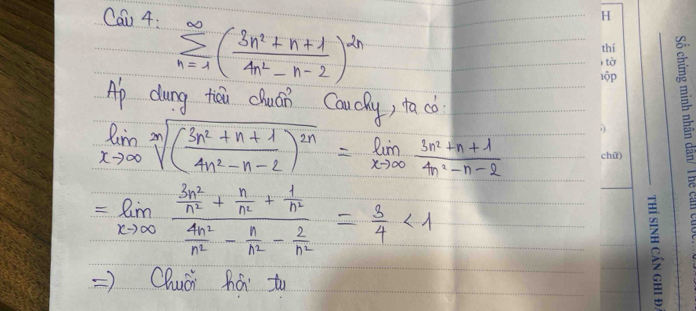 Câu 4: \sum_{n=1}^{\infty} \left( \frac{3n^2+n+1}{4n^2-n-2} \right)^{2n}
Áp dụng tiêu chuẩn Cauchy, ta có:
\lim_{x \to \infty} \sqrt[2n]{\left( \frac{3n^2+n+1}{4n^2-n-2} \right)^{2n}} = \lim_{x \to \infty} \frac{3n^2+n+1}{4n^2-n-2}
= \lim_{x \to \infty} \frac{\frac{3n^2}{n^2}+\frac{n}{n^2}+\frac{1}{n^2}}{\frac{4n^2}{n^2}-\frac{n}{n^2}-\frac{2}{n^2}} = \frac{3}{4} < 1
=) Chuỗi hội tụ
H
thí
tờ
nộp
chữ)
Số chứng minh nhân dân/
THÍ SINH CẦN GHI